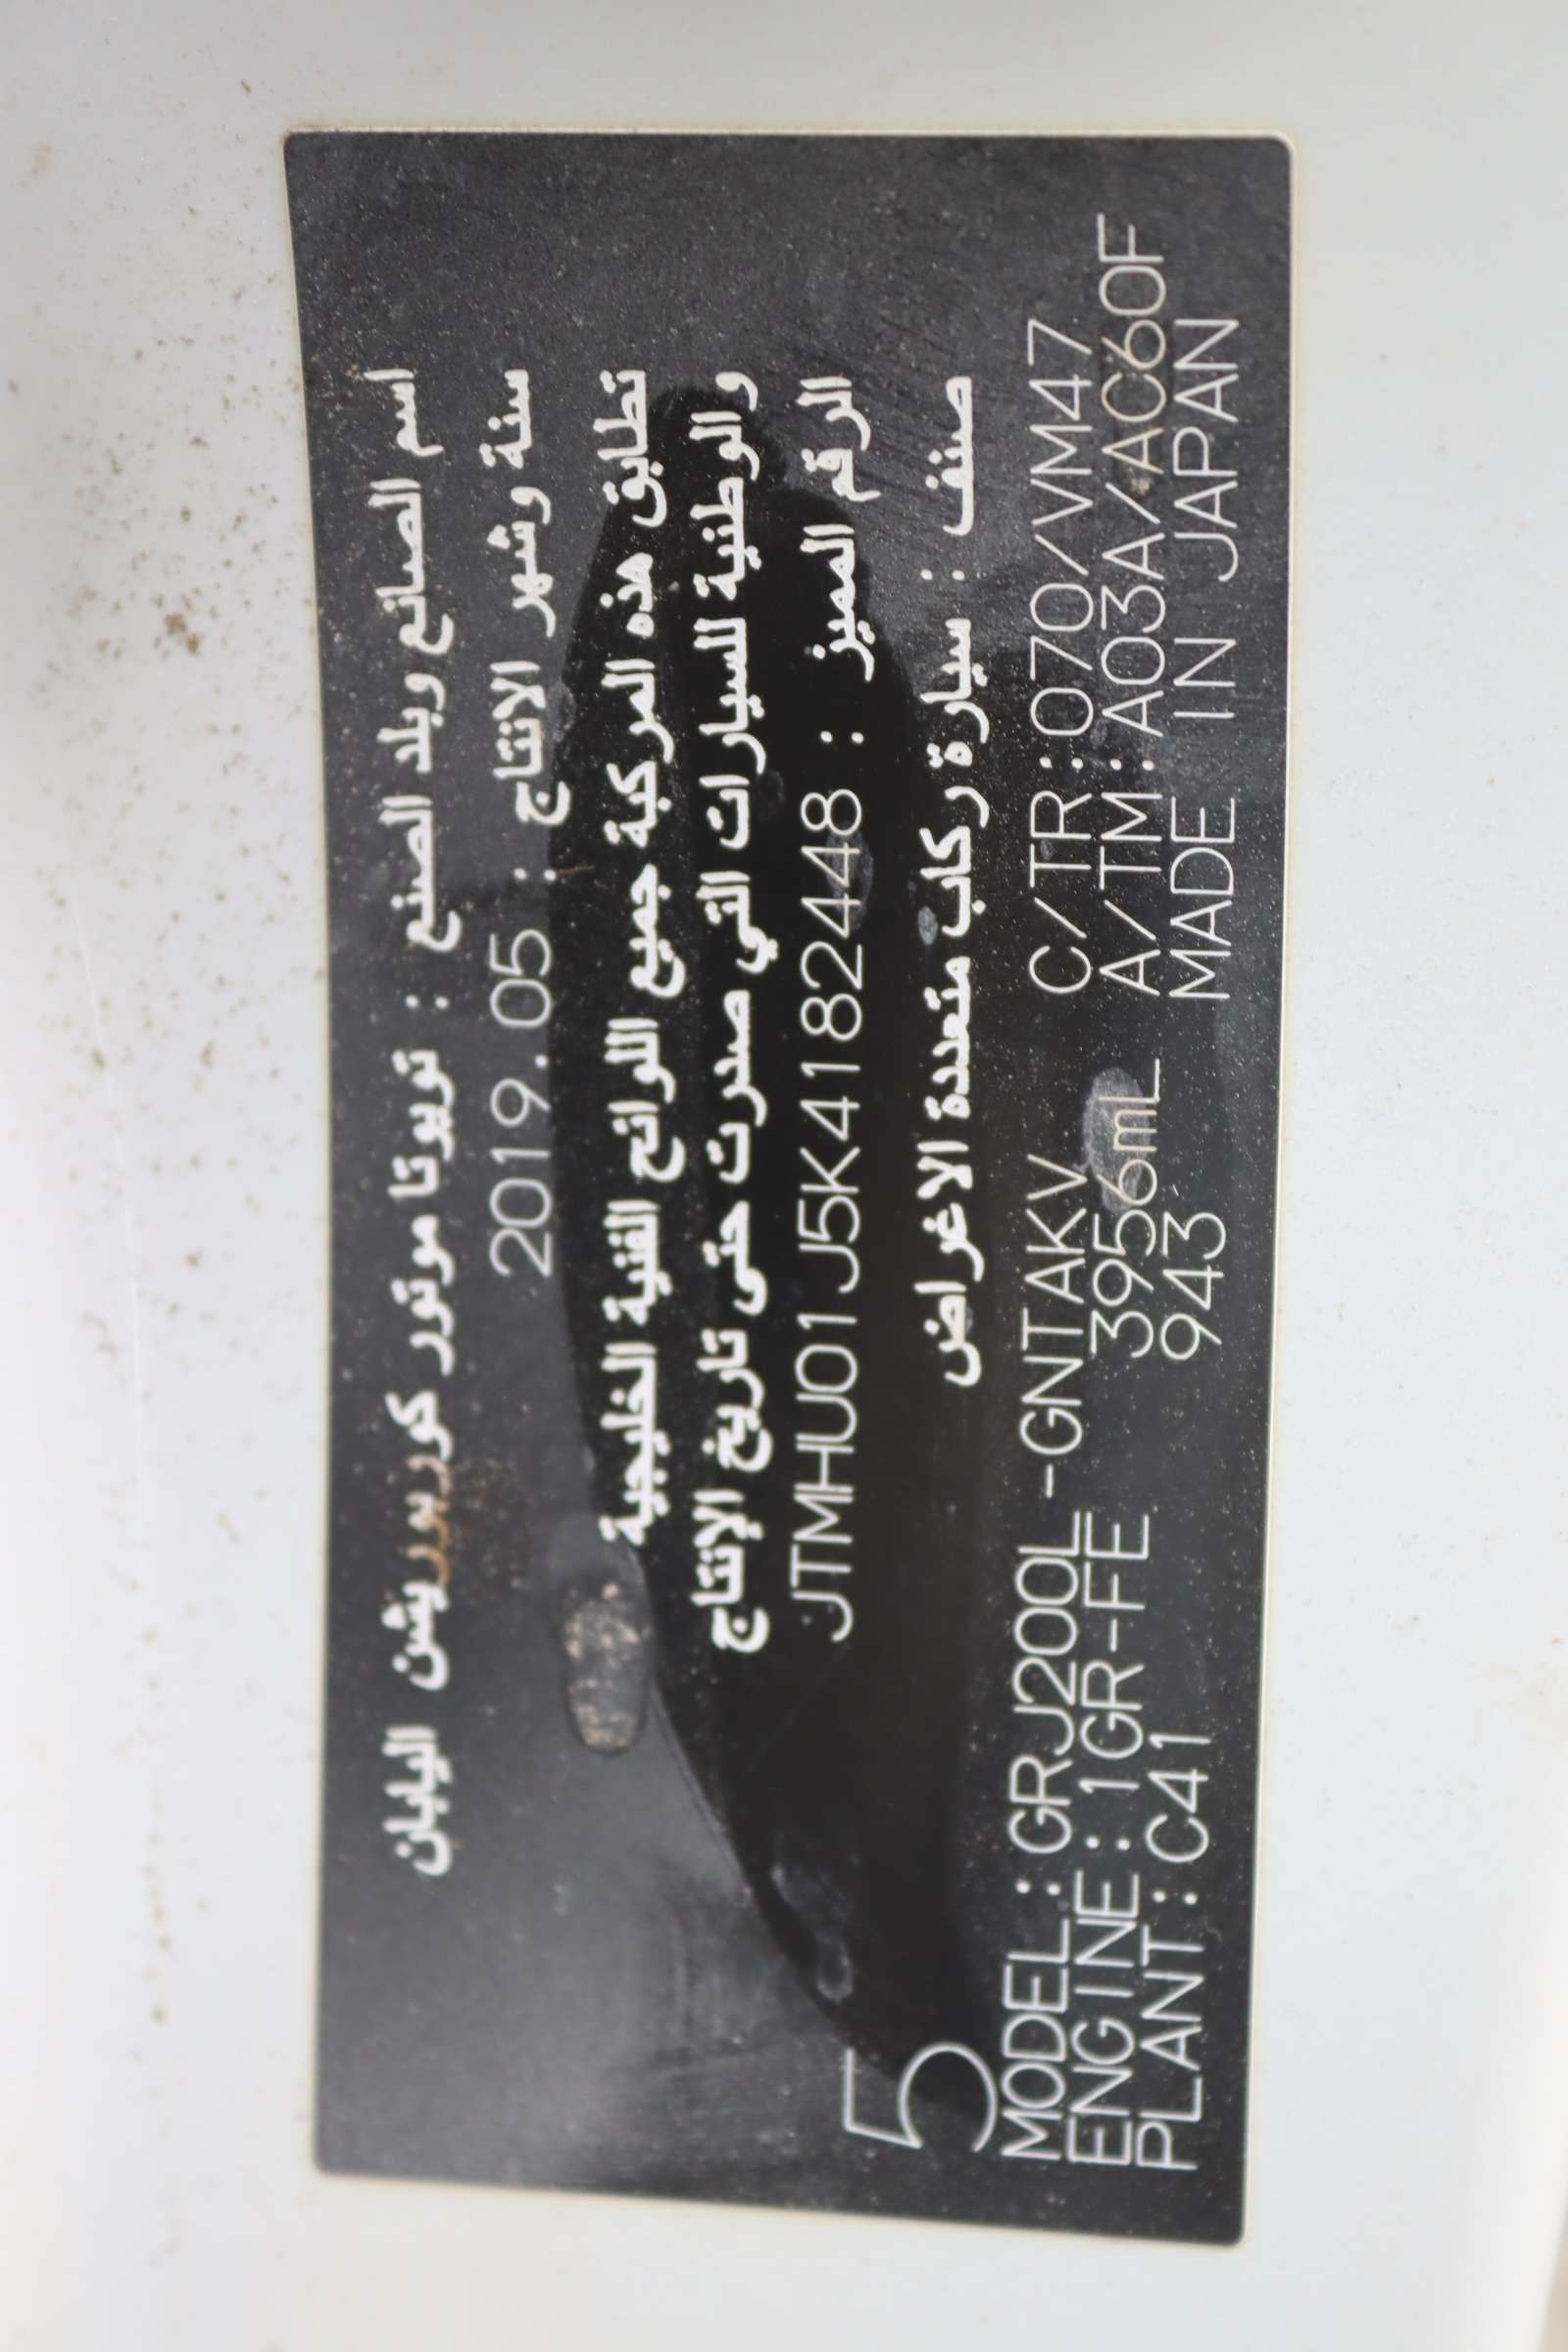 اسم الصانع وبلد الصنع : تويوتا موتور كوربوريشن اليابان
سنة وشهر الانتاج : 2019.05
تطابق هذه المركبة جميع اللوائح الفنية الخليجية
و الوطنية للسيارات التي صدرت حتى تاريخ الإنتاج
الرقم المميز : JTMHU01J5K4182448
صنف : سيارة ركاب متعددة الاغراض
5
MODEL:GRJ200L-GNTAKV C/TR:070/VM47
ENGINE:1GR-FE 3956mL A/TM:A03A/AC60F
PLANT:C41 943 MADE IN JAPAN